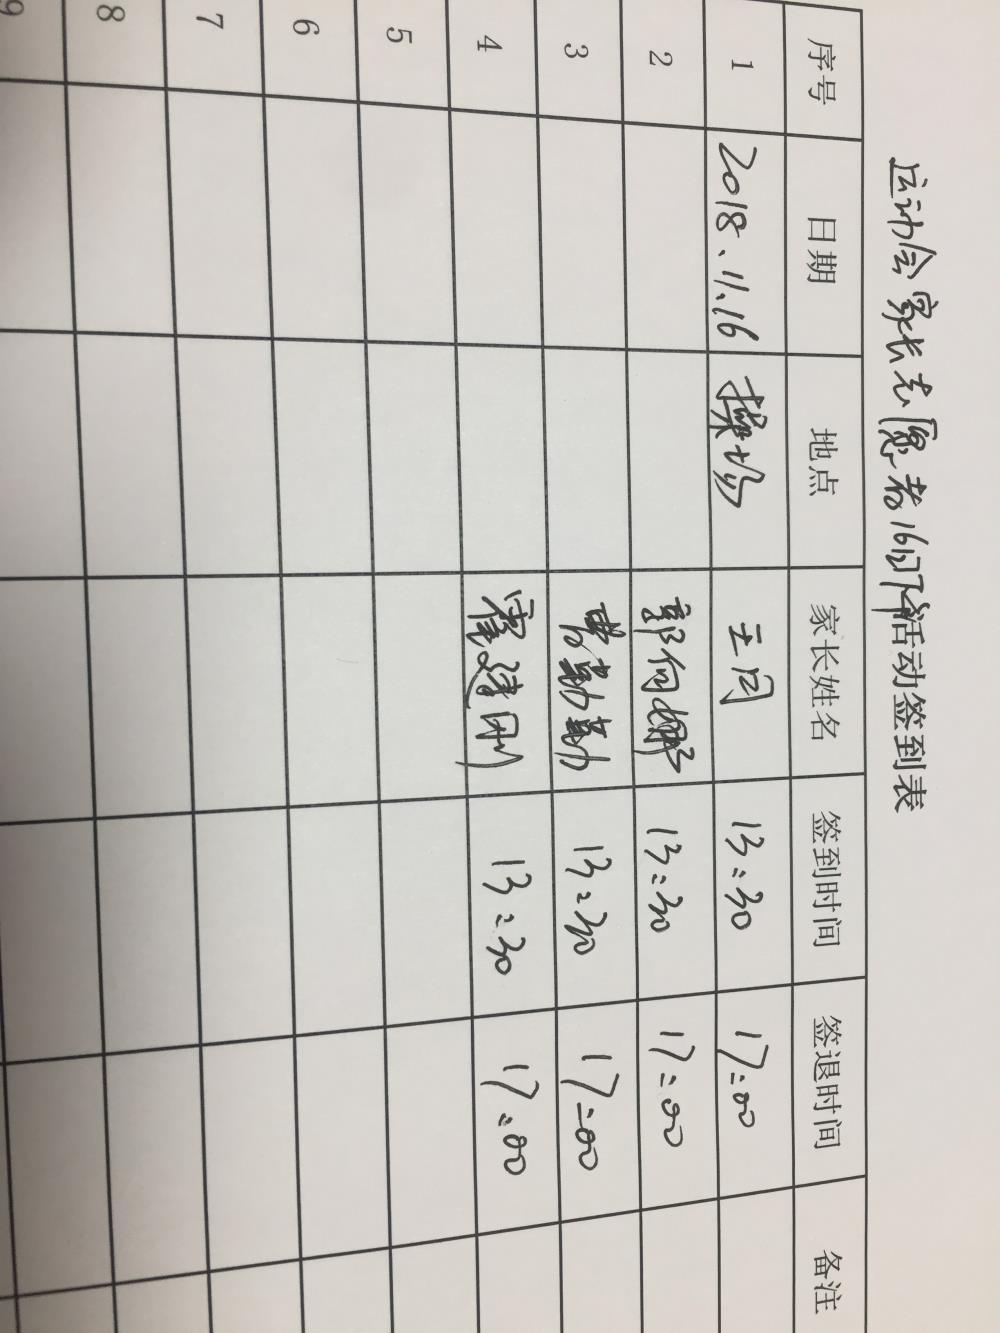 运动会家长志愿者活动签到表
序号 日期 地点 家长姓名 签到时间 签退时间 备注
1 2018.11.16 操场 王闪 13:30 17:00
2 郭向娜 13:30 17:00
3 曹勤勤 13:30 17:00
4 霍建刚 13:30 17:00
5
6
7
8
9